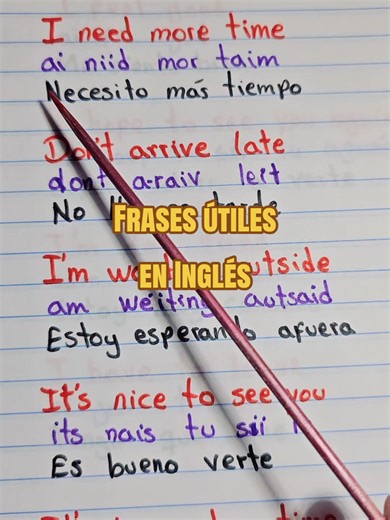 I need more time
ai niid mor taim
Necesito más tiempo
Don't arrive late
dont araiv leit
No
FRASES ÚTILES
I'm outside
EN INGLÉS
am weiting autsaid
Estoy esperando afuera
It's nice to see you
its nais tu sii
Es bueno verte